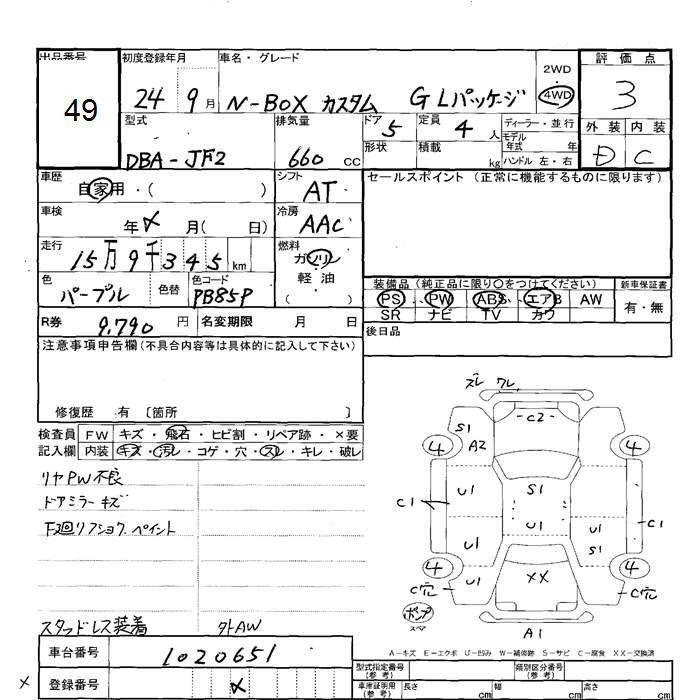 出品番号
49
初度登録年月
24 9月
車名・グレード
N-BOX カスタム GLパッケージ
2WD
4WD
評価点
3
外装 内装
D C
型式
DBA-JF2
排気量
660 cc
ドア 5
定員 4 人
ディーラー・並行
モデル年式 年
形状
積載 kg
ハンドル 左・右
車歴
自家用・( )
シフト
AT
セールスポイント (正常に機能するものに限ります)
車検
年 X 月( 日)
冷房
AAC
走行
15万9千345 km
燃料
ガソリン
軽油
( )
色
パープル
色替
色コード
PB85P
装備品 (純正品に限り○をつけてください)
新車保証書
PS PW ABS エアB AW
SR ナビ TV カワ
有・無
R券 9,790 円
名変期限 月 日
後日品
注意事項申告欄(不具合内容等は具体的に記入して下さい)
修復歴 有 〔箇所 〕
検査員記入欄
FW キズ・飛石・ヒビ割・リペア跡・×要
内装 キズ・汚レ・コゲ・穴・スレ・キレ・破レ
リヤPW不良
ドアミラーキズ
下廻リ
ペイント
スタッドレス装着 外AW
ズレ ワレ
C2
S1
A2
4 4
U1 S1
C1 C1
U1 U1 U1
S1
4 4
U1 XX
C穴 C穴
ポンプ
スペア
A1
A-キズ E-エクボ U-凹み W-補修跡 S-サビ C-腐食 XX-交換済
車台番号 1020651
登録番号 X
X
型式指定番号(参考)
類別区分番号(参考)
車庫証明用(参考) 長さ cm 幅 cm 高さ cm